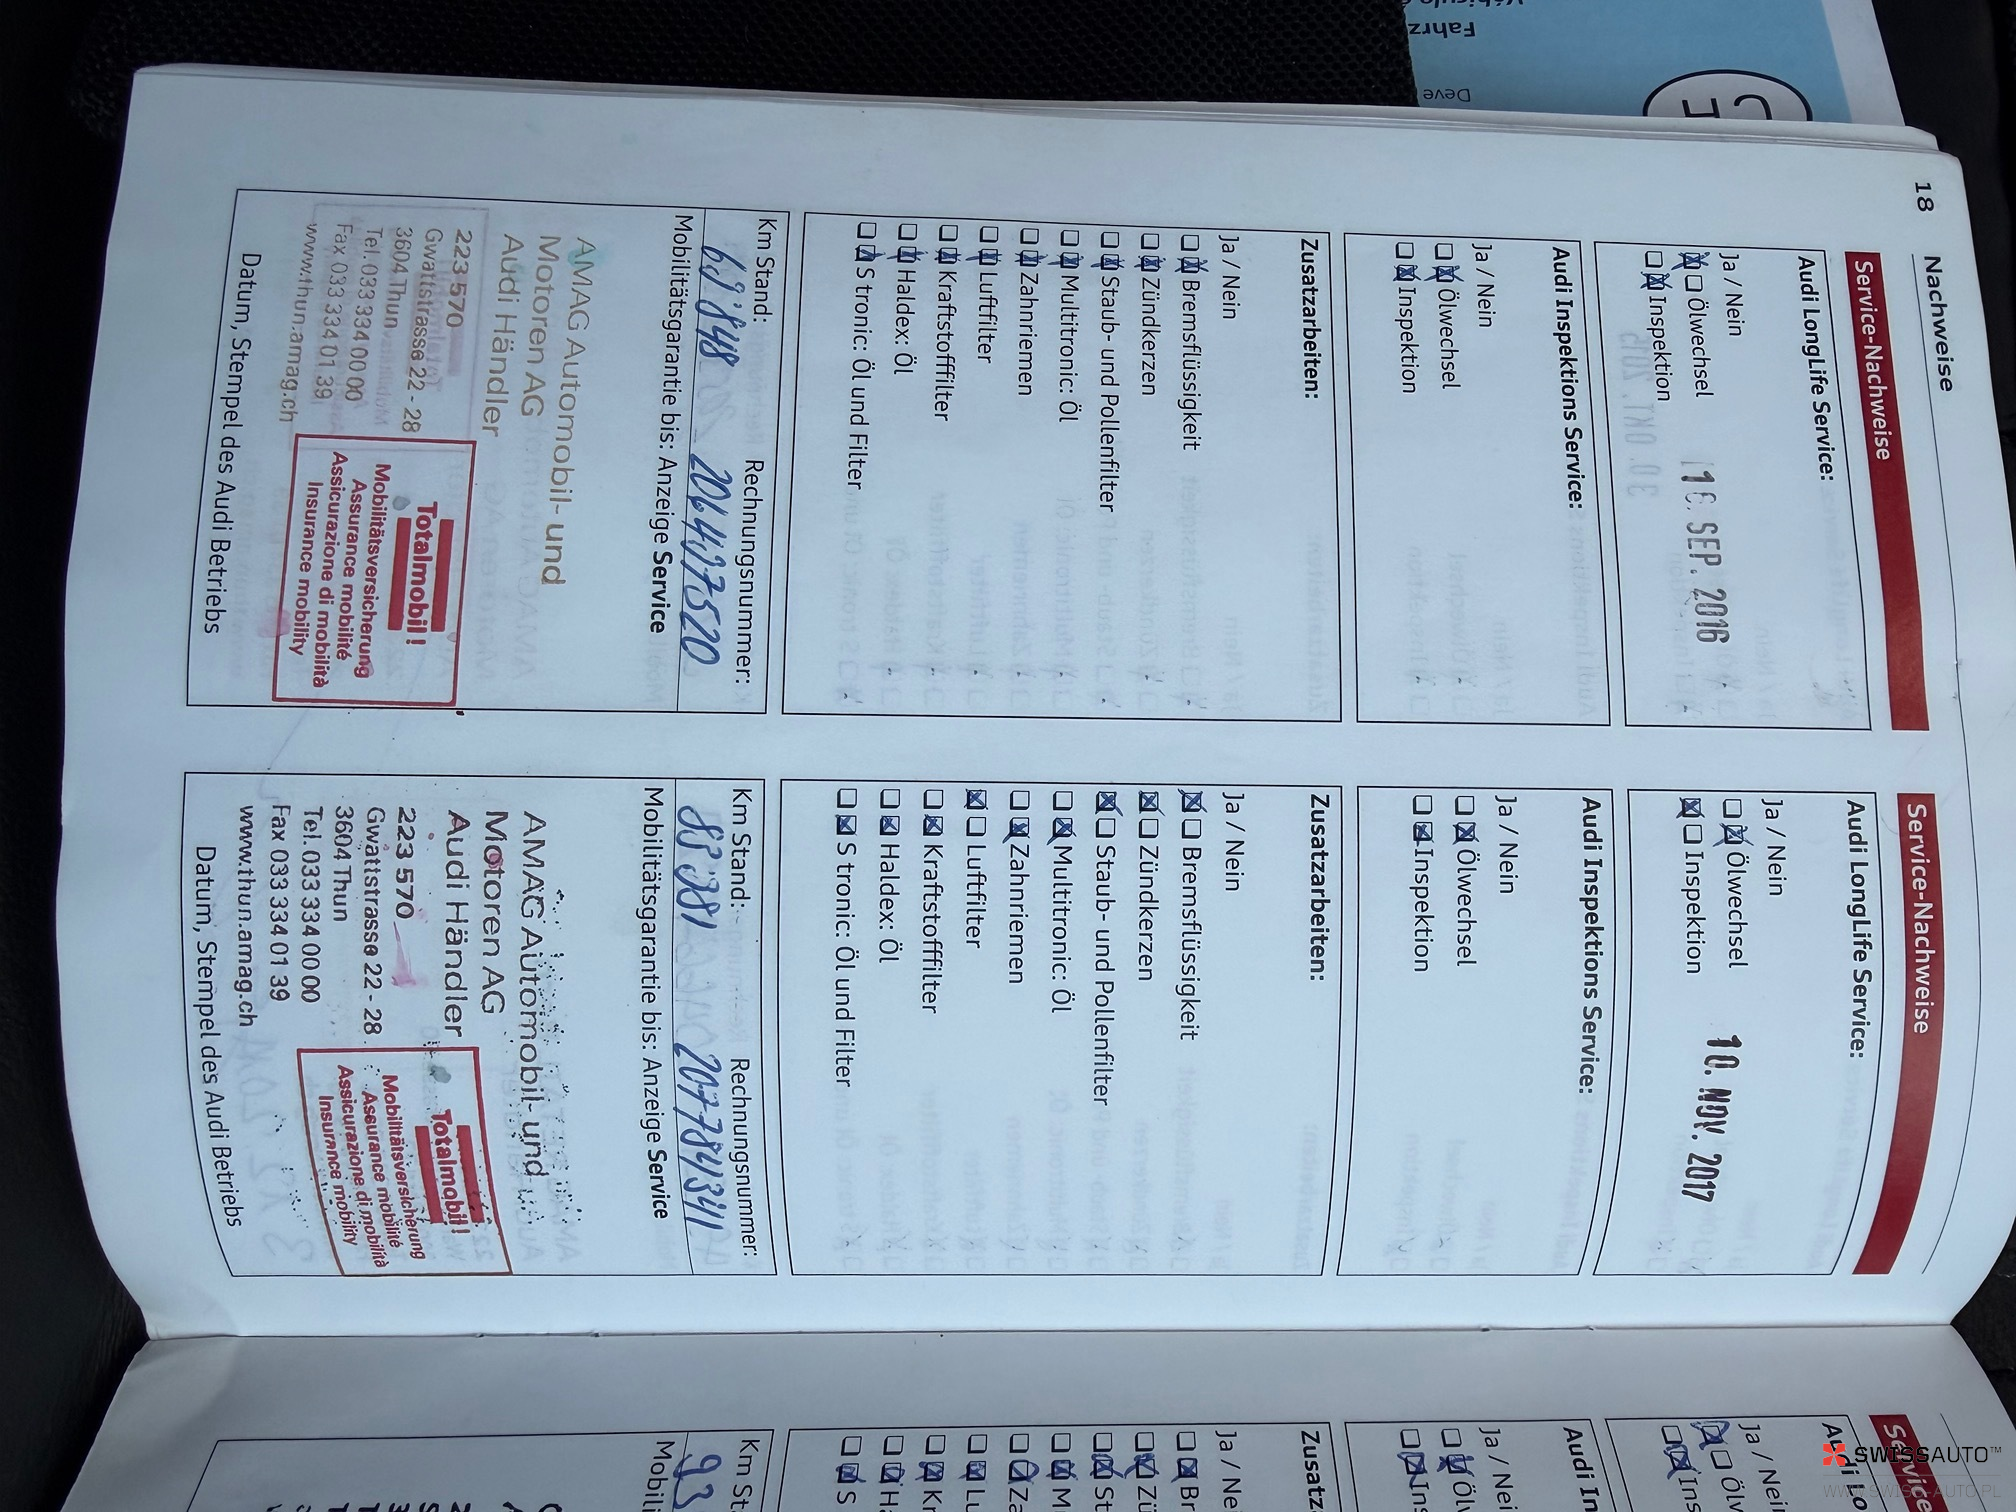 18
Nachweise
Service-Nachweise
Audi LongLife Service:
Ja / Nein
Ölwechsel
Inspektion
16. SEP. 2016
Audi Inspektions Service:
Ja / Nein
Ölwechsel
Inspektion
Zusatzarbeiten:
Ja / Nein
Bremsflüssigkeit
Zündkerzen
Staub- und Pollenfilter
Multitronic: Öl
Zahnriemen
Luftfilter
Kraftstofffilter
Haldex: Öl
S tronic: Öl und Filter
Km Stand: Rechnungsnummer:
69'848 2064097520
Mobilitätsgarantie bis: Anzeige Service
AMAG Automobil- und
Motoren AG
Audi Händler
223 570
Gwattstrasse 22 - 28
3604 Thun
Tel. 033 334 00 00
Fax 033 334 01 39
www.thun.amag.ch
Totalmobil!
Mobilitätsversicherung
Assurance mobilité
Assicurazione di mobilità
Insurance mobility
Datum, Stempel des Audi Betriebs
Service-Nachweise
Audi LongLife Service:
Ja / Nein
Ölwechsel
Inspektion
10. NOV. 2017
Audi Inspektions Service:
Ja / Nein
Ölwechsel
Inspektion
Zusatzarbeiten:
Ja / Nein
Bremsflüssigkeit
Zündkerzen
Staub- und Pollenfilter
Multitronic: Öl
Zahnriemen
Luftfilter
Kraftstofffilter
Haldex: Öl
S tronic: Öl und Filter
Km Stand: Rechnungsnummer:
83'981 2077849341
Mobilitätsgarantie bis: Anzeige Service
AMAG Automobil- und
Motoren AG
Audi Händler
223 570
Gwattstrasse 22 - 28
3604 Thun
Tel. 033 334 00 00
Fax 033 334 01 39
www.thun.amag.ch
Totalmobil!
Mobilitätsversicherung
Assurance mobilité
Assicurazione di mobilità
Insurance mobility
Datum, Stempel des Audi Betriebs
Service
Audi
Ja / Nein
Öl
Ins
Audi In
Ja / Ne
Ölv
Ins
Zusatz
Ja / Ne
Br
Zü
St
M
Za
Lu
Kr
Ha
S
Km St
93
Mobili
Fahrz
Deve
SWISSAUTO™
WWW.SWISS-AUTO.PL